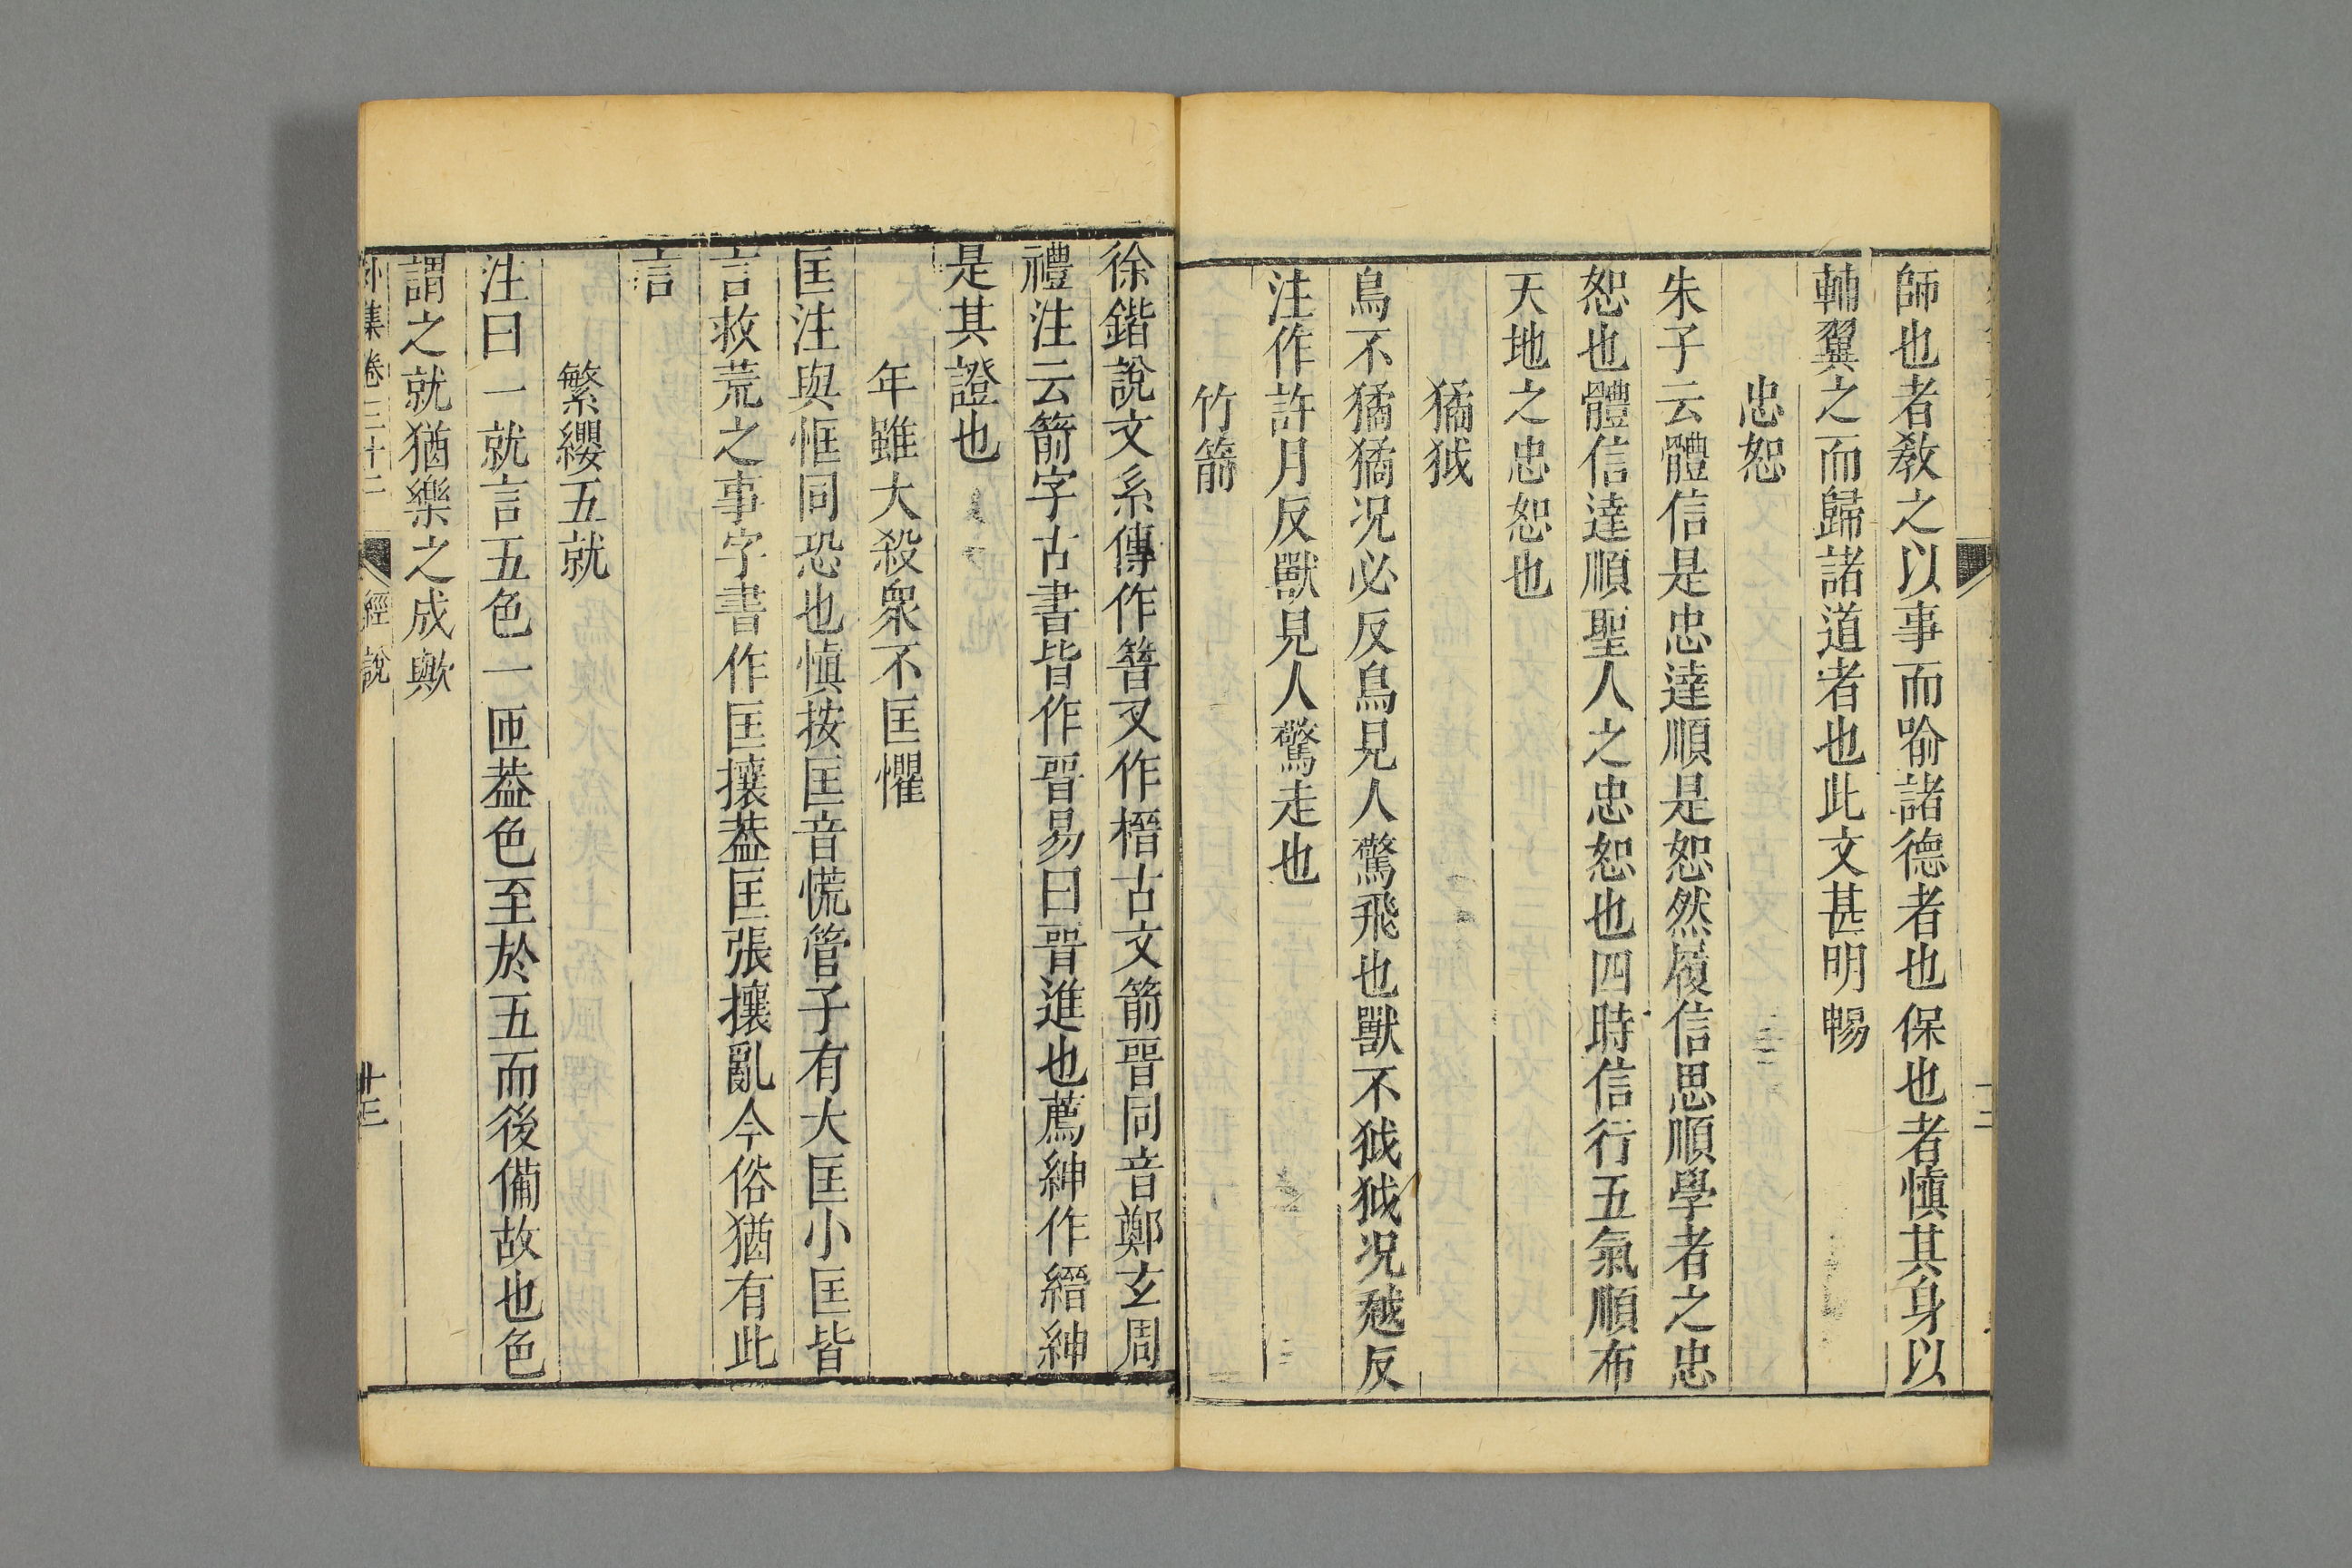 師也者敎之以事而喻諸德者也保也者慎其身以
輔翼之而歸諸道者也此文甚明暢
忠恕
朱子云體信是忠達順是恕然履信思順學者之忠
恕也體信達順聖人之忠恕也四時信行五氣順布
天地之忠恕也
獝狘
鳥不獝獝況必反鳥見人驚飛也獸不狘狘況越反
注作許月反獸見人驚走也
竹箭
徐鍇說文系傳作簮又作榗古文箭晉同音鄭玄周
禮注云箭字古書皆作晉易曰晉進也薦紳作縉紳
是其證也
年雖大殺衆不匡懼
匡注與恇同恐也慎按匡音慌管子有大匡小匡皆
言救荒之事字書作匡攘葢匡張攘亂今俗猶有此
言
繁纓五就
注曰一就言五色一匝葢色至於五而後備故也色
謂之就猶樂之成歟
外集卷三十二 經說 十三